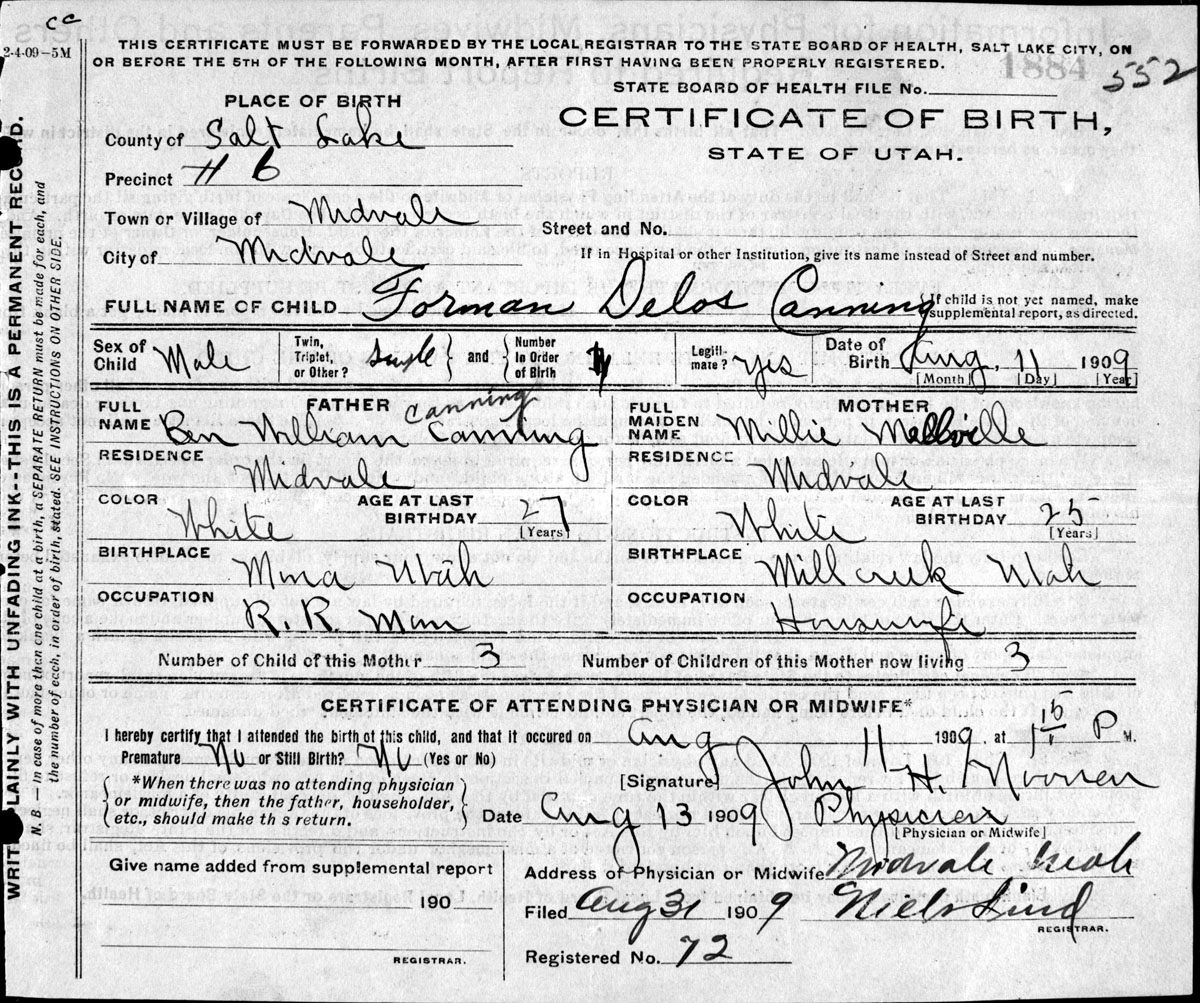 cc
2-4-09—5M
THIS CERTIFICATE MUST BE FORWARDED BY THE LOCAL REGISTRAR TO THE STATE BOARD OF HEALTH, SALT LAKE CITY, ON
OR BEFORE THE 5TH OF THE FOLLOWING MONTH, AFTER FIRST HAVING BEEN PROPERLY REGISTERED.
1884 552
STATE BOARD OF HEALTH FILE No.
PLACE OF BIRTH
CERTIFICATE OF BIRTH,
STATE OF UTAH.
County of Salt Lake
Precinct # 6
Town or Village of Midvale
Street and No.
City of Midvale
If in Hospital or other Institution, give its name instead of Street and number.
FULL NAME OF CHILD Forman Delos Canning
If child is not yet named, make
supplemental report, as directed.
Sex of Child Male
Twin, Triplet, or Other? Single and Number in Order of Birth
Legiti-mate? yes
Date of Birth Aug, 11 1909
[Month] [Day] [Year]
FATHER
FULL NAME Ben William Canning
Canning
RESIDENCE
Midvale
COLOR
White
AGE AT LAST BIRTHDAY 27
[Years]
BIRTHPLACE
Mona Utah
OCCUPATION
R. R. Man
MOTHER
FULL MAIDEN NAME Millie Mellville
RESIDENCE
Midvale
COLOR
White
AGE AT LAST BIRTHDAY 25
[Years]
BIRTHPLACE
Millcreek Utah
OCCUPATION
Housewife
Number of Child of this Mother 3
Number of Children of this Mother now living 3
CERTIFICATE OF ATTENDING PHYSICIAN OR MIDWIFE*
I hereby certify that I attended the birth of this child, and that it occured on Aug 11 1909 at P M.
Premature No or Still Birth? No (Yes or No)
*When there was no attending physician
or midwife, then the father, householder,
etc., should make th s return.
[Signature] John H.
Date Aug 13 1909 Physician
[Physician or Midwife]
Give name added from supplemental report
190
REGISTRAR.
Address of Physician or Midwife Midvale Utah
Filed Aug 31 1909 Niels Lind
REGISTRAR.
Registered No. 72
WRITE PLAINLY WITH UNFADING INK---THIS IS A PERMANENT RECORD.
N. B.—In case of more than one child at a birth, a SEPARATE RETURN must be made for each, and
the number of each, in order of birth, stated. SEE INSTRUCTIONS ON OTHER SIDE.